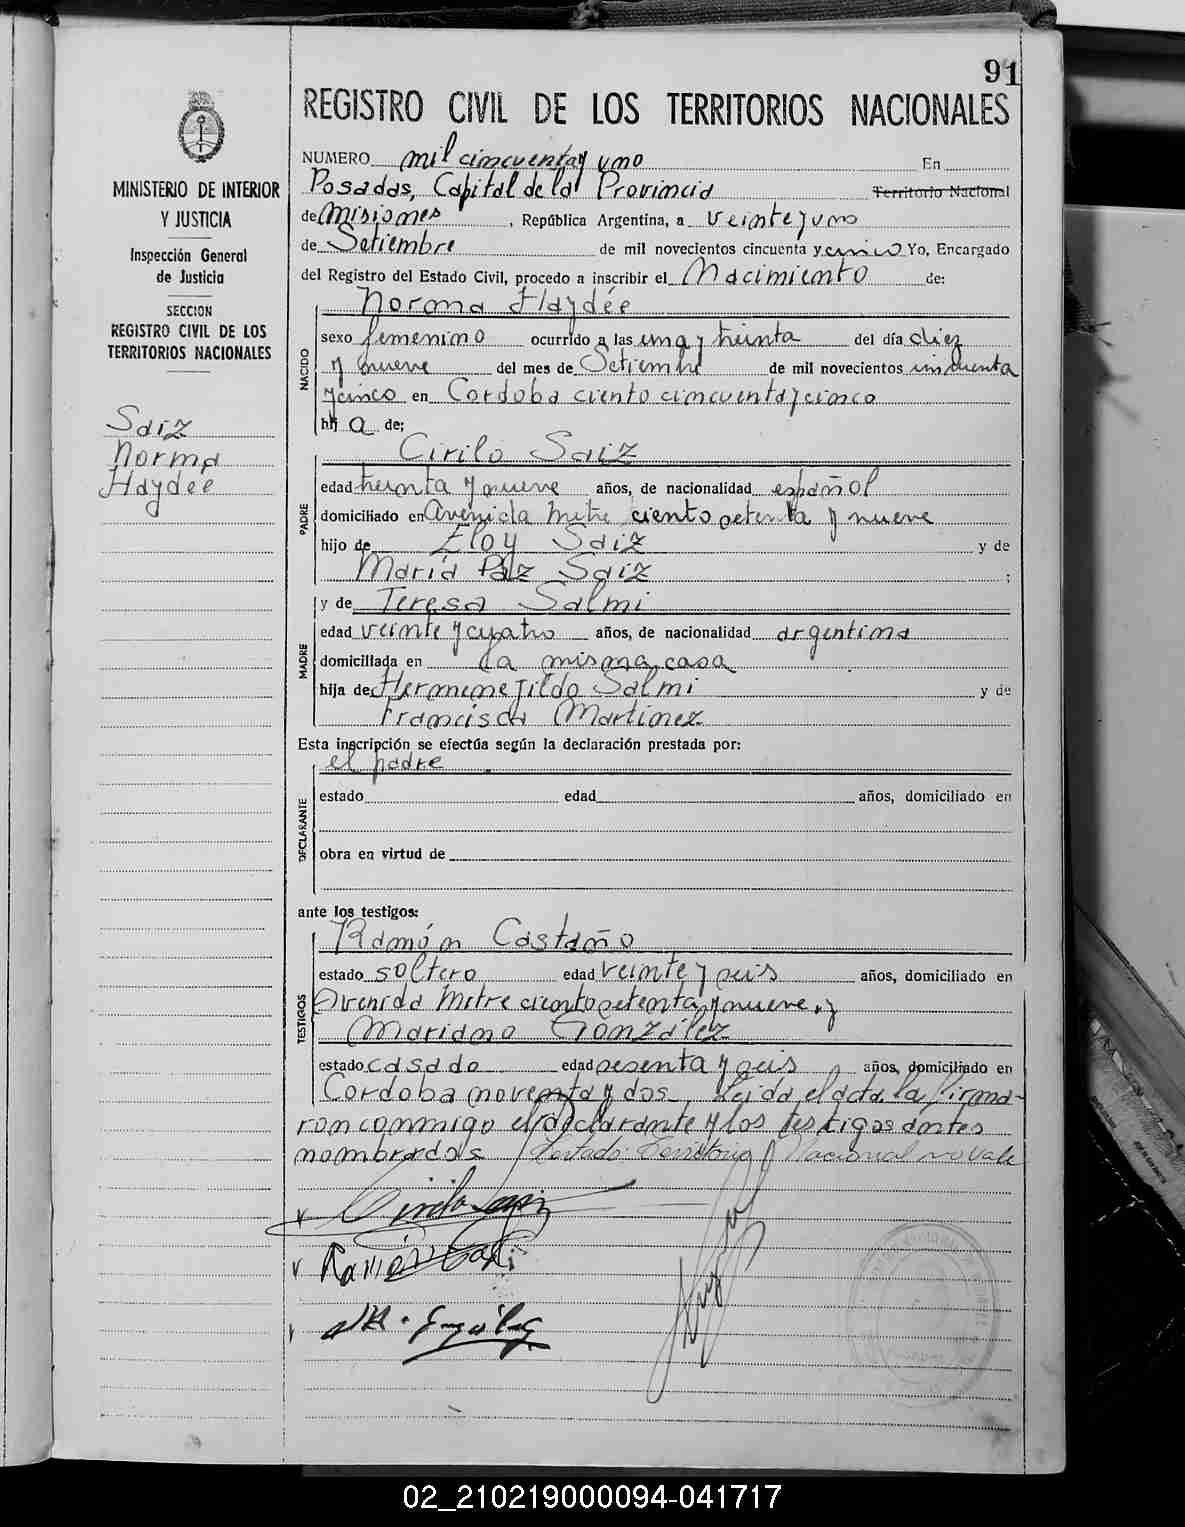 91
REGISTRO CIVIL DE LOS TERRITORIOS NACIONALES
MINISTERIO DE INTERIOR
Y JUSTICIA
Inspección General
de Justicia
SECCION
REGISTRO CIVIL DE LOS
TERRITORIOS NACIONALES
Saiz
Norma
Haydée
NUMERO mil cincuenta y uno En
Posadas, Capital de la Provincia Territorio Nacional
de Misiones, República Argentina, a veinte y uno
de Setiembre de mil novecientos cincuenta y cinco Yo, Encargado
del Registro del Estado Civil, procedo a inscribir el Nacimiento de:
NACIDO
Norma Haydée
sexo femenino ocurrido a las una y treinta del día diez
y nueve del mes de Setiembre de mil novecientos cincuenta
y cinco en Cordoba ciento cincuenta y cinco
hij a de;
PADRE
Cirilo Saiz
edad treinta y nueve años, de nacionalidad español
domiciliado en Avenida Mitre ciento setenta y nueve
hijo de Eloy Saiz y de
María Paz Saiz ;
MADRE
y de Teresa Salmi
edad veinte y cuatro años, de nacionalidad argentina
domiciliada en la misma casa
hija de Hermenejildo Salmi y de
Francisca Martinez
Esta inscripción se efectúa según la declaración prestada por:
DECLARANTE
el padre
estado edad años, domiciliado en
obra en virtud de
ante los testigos:
TESTIGOS
Ramón Castaño
estado soltero edad veinte y seis años, domiciliado en
Avenida Mitre ciento setenta y nueve, y
Mariano González
estado casado edad sesenta y seis años, domiciliado en
Cordoba noventa y dos. Leida el acta, la firma-
ron conmigo el declarante y los testigos antes
nombrados. Testado: Territorio Nacional no vale
02_210219000094-041717